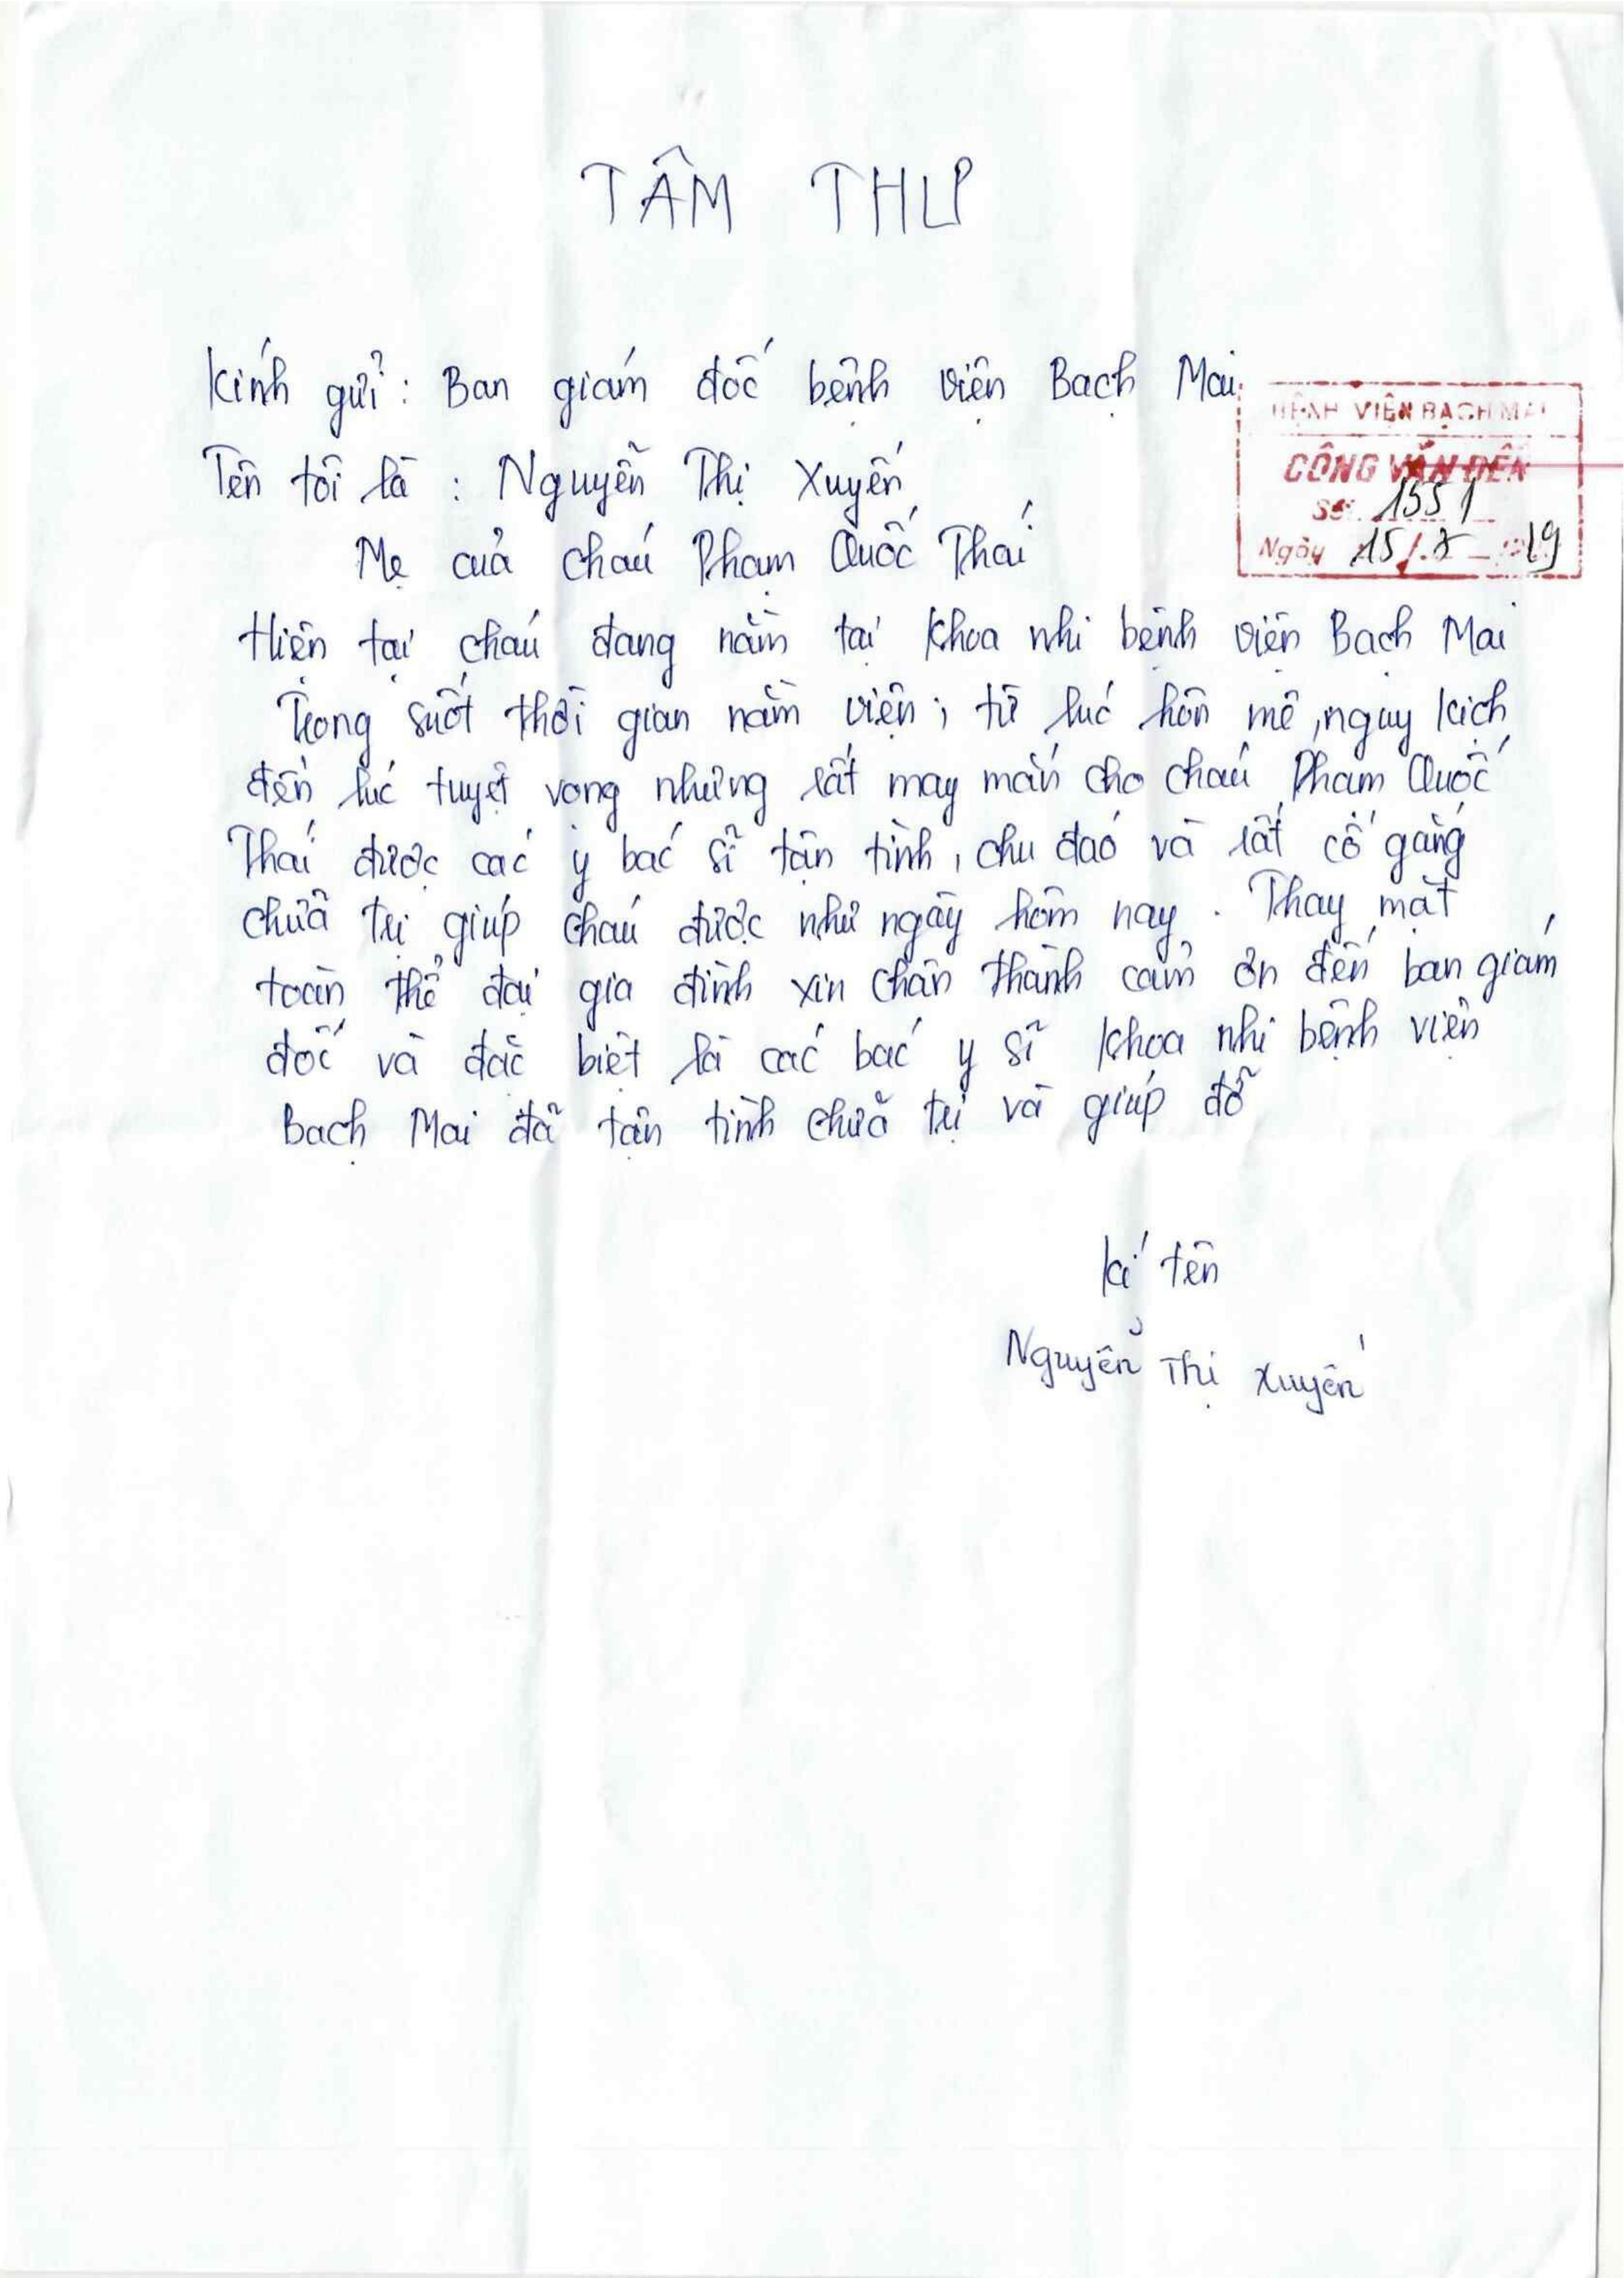 TÂM THƯ
Kính gửi : Ban giám đốc bệnh viện Bạch Mai.
BỆNH VIỆN BẠCH MAI
CÔNG VĂN ĐẾN
Số: 1551
Ngày 15/.8 - 19
Tên tôi là : Nguyễn Thị Xuyến
Mẹ của cháu Phạm Quốc Thái
Hiện tại cháu đang nằm tại khoa nhi bệnh viện Bạch Mai
Trong suốt thời gian nằm viện, từ lúc hôn mê, nguy kịch
đến lúc tuyệt vọng nhưng rất may mắn cho cháu Phạm Quốc
Thái được các y bác sĩ tận tình, chu đáo và rất cố gắng
chữa trị giúp cháu được như ngày hôm nay . Thay mặt
toàn thể đại gia đình xin chân thành cảm ơn đến ban giám
đốc và đặc biệt là các bác y sĩ khoa nhi bệnh viện
Bạch Mai đã tận tình chữa trị và giúp đỡ
kí tên
Nguyễn Thị Xuyến